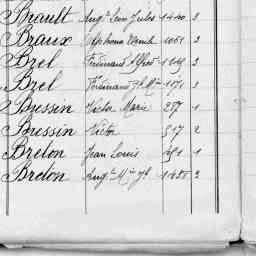 Brault Aug.te Léon Jules 1440 3
Braux Alphonse Emile 1051 3
Brel Ferdinand Alfred 1149 3
Brel Ferdinand 1171 3
Bressin Victor Marie 257 1
Bressin Victor 517 2
Brelon Jean Louis 1
Brelon Aug.te M.ie J.h 1485 3